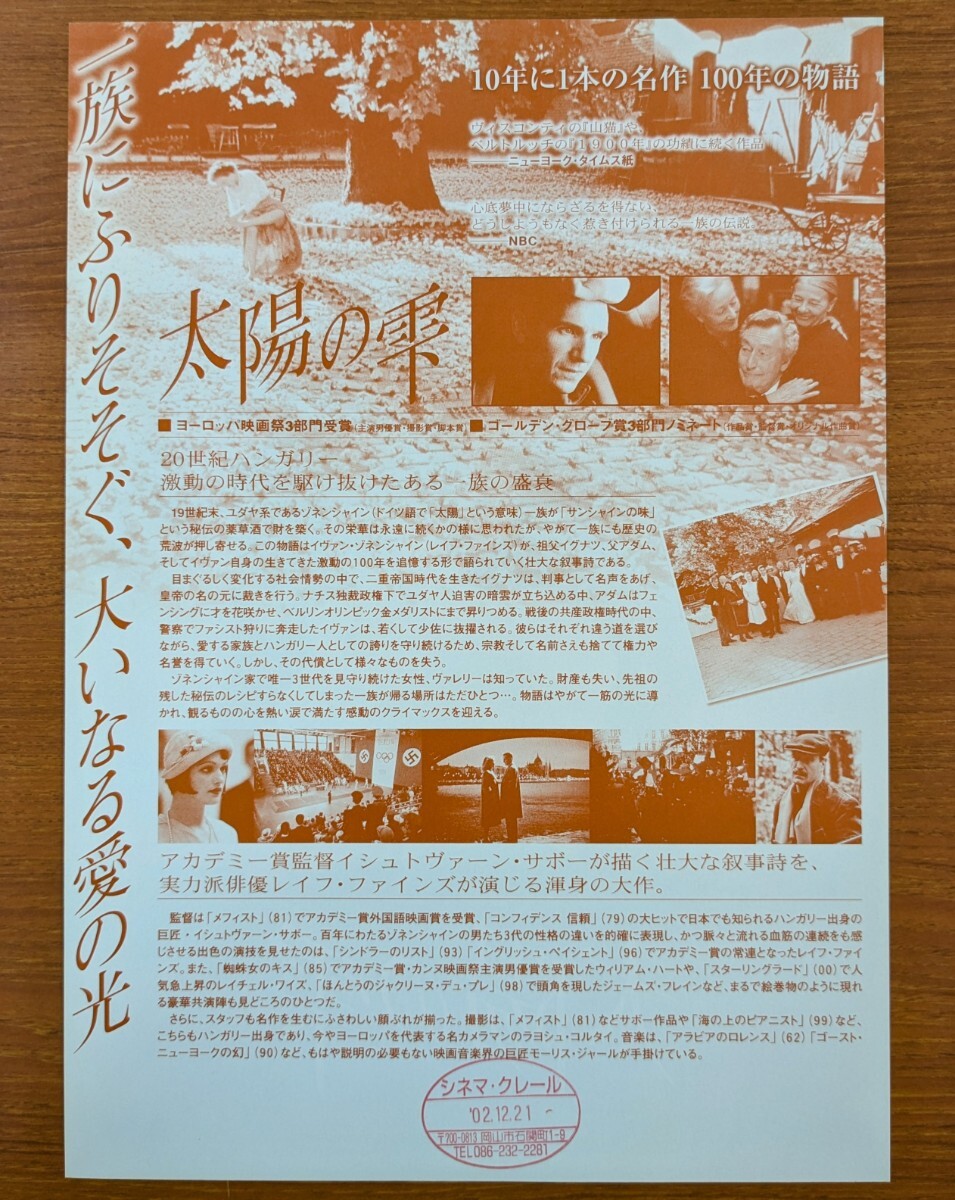 一族にふりそそぐ、大いなる愛の光
10年に1本の名作 100年の物語
ヴィスコンティの『山猫』や、
ベルトルッチの『1900年』の功績に続く作品
──ニューヨーク・タイムス紙
心底夢中にならざるを得ない、
どうしようもなく惹き付けられる一族の伝説
── NBC
太陽の雫
■ ヨーロッパ映画祭3部門受賞(主演男優賞・撮影賞・脚本賞) ■ ゴールデン・グローブ賞3部門ノミネート(作品賞・監督賞・オリジナル作曲賞)
20世紀ハンガリー
激動の時代を駆け抜けたある一族の盛衰
19世紀末、ユダヤ系であるゾネンシャイン(ドイツ語で「太陽」という意味)一族が「サンシャインの味」
という秘伝の薬草酒で財を築く。その栄華は永遠に続くかの様に思われたが、やがて一族にも歴史の
荒波が押し寄せる。この物語はイヴァン・ゾネンシャイン(レイフ・ファインズ)が、祖父イグナツ、父アダム、
そしてイヴァン自身の生きてきた激動の100年を追憶する形で語られていく壮大な叙事詩である。
目まぐるしく変化する社会情勢の中で、二重帝国時代を生きたイグナツは、判事として名声をあげ、
皇帝の名の元に裁きを行う。ナチス独裁政権下でユダヤ人迫害の暗雲が立ち込める中、アダムはフェ
ンシングに才を花咲かせ、ベルリンオリンピック金メダリストにまで昇りつめる。戦後の共産政権時代の中、
警察でファシスト狩りに奔走したイヴァンは、若くして少佐に抜擢される。彼らはそれぞれ違う道を選び
ながら、愛する家族とハンガリー人としての誇りを守り続けるため、宗教そして名前さえも捨てて権力や
名誉を得ていく。しかし、その代償として様々なものを失う。
ゾネンシャイン家で唯一3世代を見守り続けた女性、ヴァレリーは知っていた。財産も失い、先祖の
残した秘伝のレシピすらなくしてしまった一族が帰る場所はただひとつ…。物語はやがて一筋の光に導
かれ、観るものの心を熱い涙で満たす感動のクライマックスを迎える。
アカデミー賞監督イシュトヴァーン・サボーが描く壮大な叙事詩を、
実力派俳優レイフ・ファインズが演じる渾身の大作。
監督は「メフィスト」(81)でアカデミー賞外国語映画賞を受賞、「コンフィデンス 信頼」(79)の大ヒットで日本でも知られるハンガリー出身の
巨匠・イシュトヴァーン・サボー。百年にわたるゾネンシャインの男たち3代の性格の違いを的確に表現し、かつ脈々と流れる血筋の連続をも感
じさせる出色の演技を見せたのは、「シンドラーのリスト」(93)「イングリッシュ・ペイシェント」(96)でアカデミー賞の常連となったレイフ・ファイ
ンズ。また、「蜘蛛女のキス」(85)でアカデミー賞・カンヌ映画祭主演男優賞を受賞したウィリアム・ハートや、「スターリングラード」(00)で人
気急上昇のレイチェル・ワイズ、「ほんとうのジャクリーヌ・デュ・プレ」(98)で頭角を現したジェームズ・フレインなど、まるで絵巻物のように現れ
る豪華共演陣も見どころのひとつだ。
さらに、スタッフも名作を生むにふさわしい顔ぶれが揃った。撮影は、「メフィスト」(81)などサボー作品や「海の上のピアニスト」(99)など、
こちらもハンガリー出身であり、今やヨーロッパを代表する名カメラマンのラヨシュ・コルタイ。音楽は、「アラビアのロレンス」(62)「ゴースト・
ニューヨークの幻」(90)など、もはや説明の必要もない映画音楽界の巨匠モーリス・ジャールが手掛けている。
シネマ・クレール
'02.12.21 ~
〒700-0813 岡山市石関町1-8
TEL086-232-2281